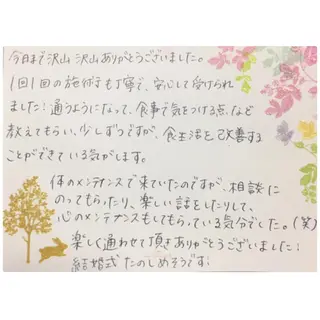 今日まで沢山沢山ありがとうございました。
1回1回の施術も丁寧で、安心して受けられ
ました！通うようになって、食事で気をつける点など
教えてもらい、少しずつですが、食生活を改善する
ことができている気がします。
体のメンテナンスで来ていたのですが、相談に
のってもらったり、楽しい話をしたりして、
心のメンテナンスもしてもらっている気分でした。(笑)
楽しく通わせて頂きありがとうございました！
結婚式たのしめそうです！